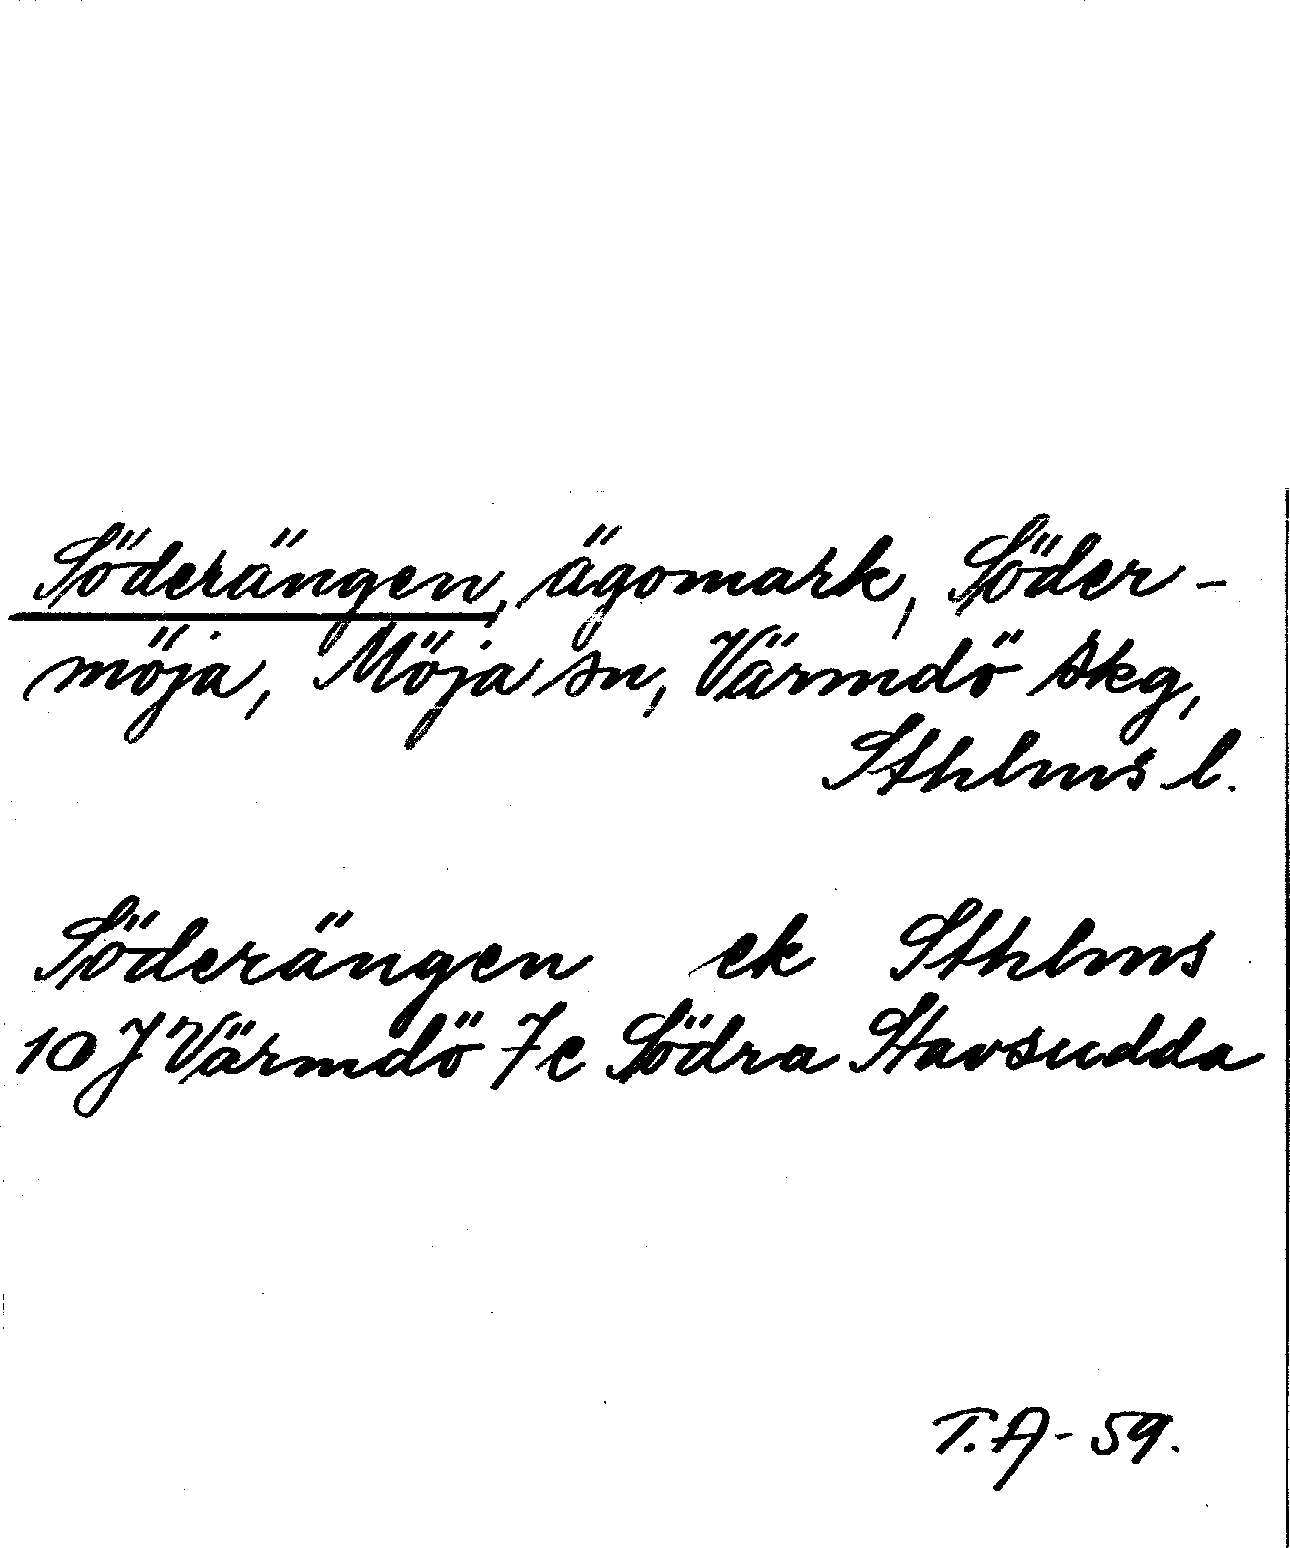 Söderängen, ägomark, Söder-
möja, Möja sn, Värmdö skg,
Sthlms l.
Söderängen ek Sthlms
10 J Värmdö 7e Södra Stavsudda
T.A-59.